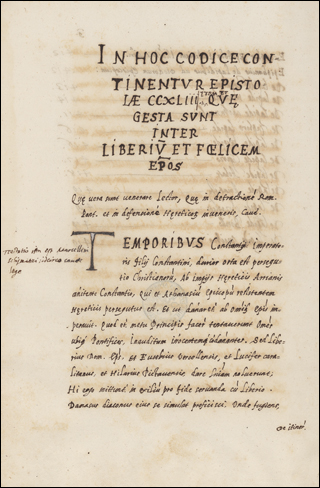 IN HOC CODICE CON
TINENTVR EPISTO
LÆ CCXLIII QVĘ
GESTA SUNT
INTER
LIBERIV̄ ET FŒLICEM
EP̄OS
Quę vera sunt venerare Lector, Quę in detractionē Rom.
Pont. et in defensionē Hereticoꝝ inveneris, Caue.
TEMPORIBVS Constantij Imperato
ris filij Constantini, durior orta est persequu
tio Christianorū, Ab impijs Hereticis Arrianis
annitente Constantio, qui et Athanasiū Episcopū resistentem
Hereticis persequutus est. Et ut damaret̄ ab omib9 Epis im
perauit. Quod et metu Principis facere tentauerunt Omēs
ubiq Pontifices, Inauditum innocentemq̄ damnantes. Sed Libe
rius Rom. Eps. et Eusebius Vercellensis, et Lucifer cara
litanus, et Hilarius Pictauensis, dare sniam noluerunt,
Hi ergo mittunt̄ in exiliū pro fide seruanda cū Liberio
Damasus diaconus eius se simulat proficisci. Unde fugiens,